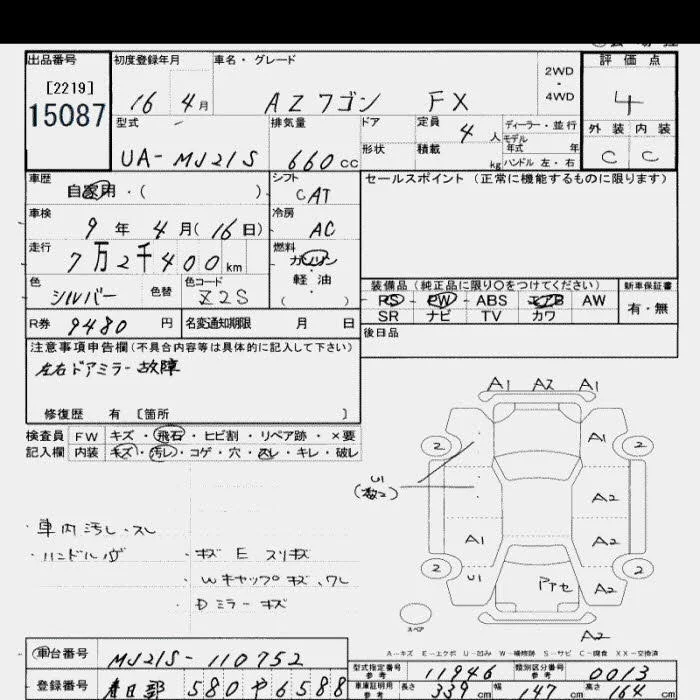 出品番号 初度登録年月 車名・グレード 評価点
[2219] 2WD・4WD
15087 16 4月 AZワゴン FX 4
型式 排気量 ドア 定員 4人 ディーラー・並行 外装 内装
モデル年式 年
UA-MJ21S 660cc 形状 積載 kg ハンドル 左・右 C C
車歴 自家用・( ) シフト CAT セールスポイント(正常に機能するものに限ります)
車検 9年 4月(16日) 冷房 AC
走行 7万2千400km 燃料 ガソリン
軽油
( )
色 シルバー 色替 色コード Z2S 装備品(純正品に限り〇をつけてください) 新車保証書
PS・PW・ABS エアB AW 有・無
R券 9480円 名変通知期限 月 日 SR ナビ TV カワ
後日品
注意事項申告欄(不具合内容等は具体的に記入して下さい)
左右ドアミラー故障
修復歴 有 [箇所 ]
検査員 FW キズ・飛石・ヒビ割・リペア跡・×要
記入欄 内装 キズ・汚レ・コゲ・穴・スレ・キレ・破レ
A1 A2 A1
2 A1 2
U1
(数2) A2
A1 A2
2 U1 アセ A2 2
スペア
A2
・車内汚レ・スレ
・ハンドル
・キズ E スリキズ
・Wキャップキズ、ワレ
・Dミラーキズ
A-キズ E-エクボ U-凹み W-補修跡 S-サビ C-腐食 XX-交換済
車台番号 MJ21S-110752 型式指定番号 参考 11946 類別区分番号 参考 0013
登録番号 春日部 580 や 6588 車庫証明用 参考 長さ 339cm 幅 147cm 高さ 164cm